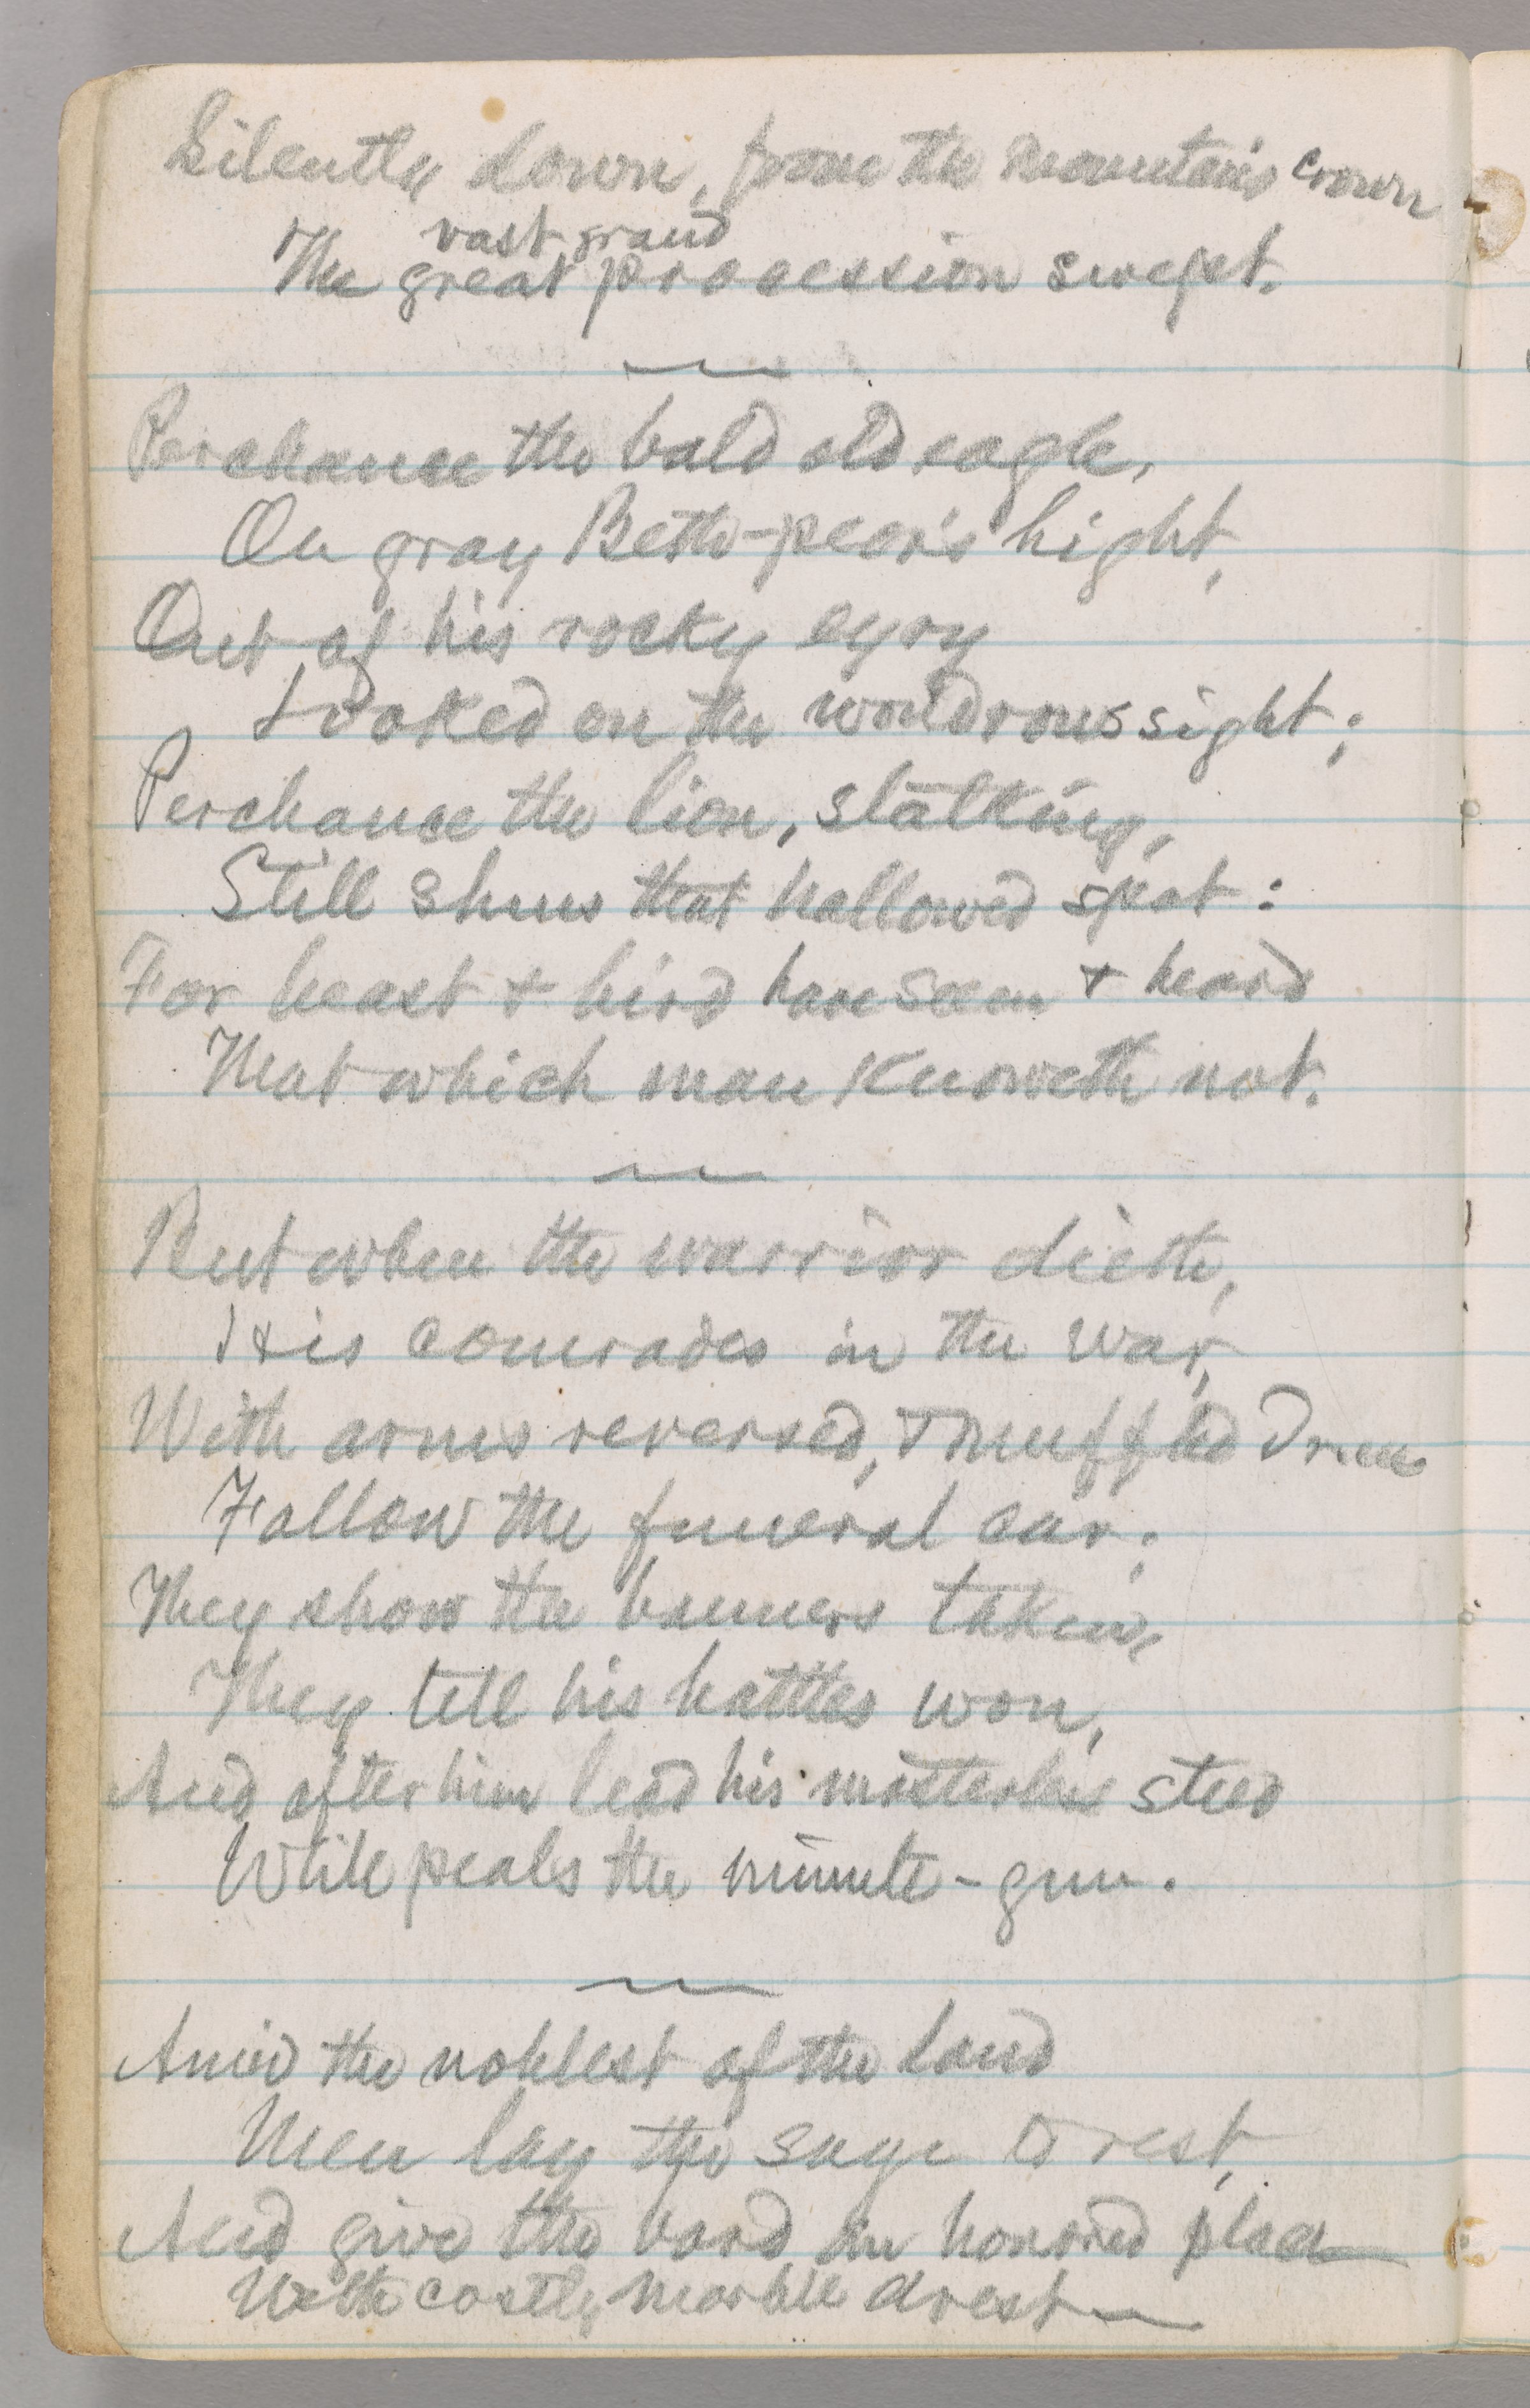 Silently down, from the mountain's crown
vast grand
The great procession swept.
Perchance the bald old eagle,
On gray Beth-peor's hight,
Out of his rocky eyry
Looked on the wondrous sight;
Perchance the lion, stalking,
Still shuns that hallowed spot:
For beast & bird have seen & heard
That which man Knoweth not.
But when the warrior dieth,
His comrades in the war,
With arms reversed, & muffled drum
Follow the funeral car;
They show the banners taken,
They tell his battles won,
And after him lead his masterless steed
While peals the minute-gun.
Amid the noblest of the land
Men lay the sage to rest,
And give the bard an honored place
With costly marble drest—